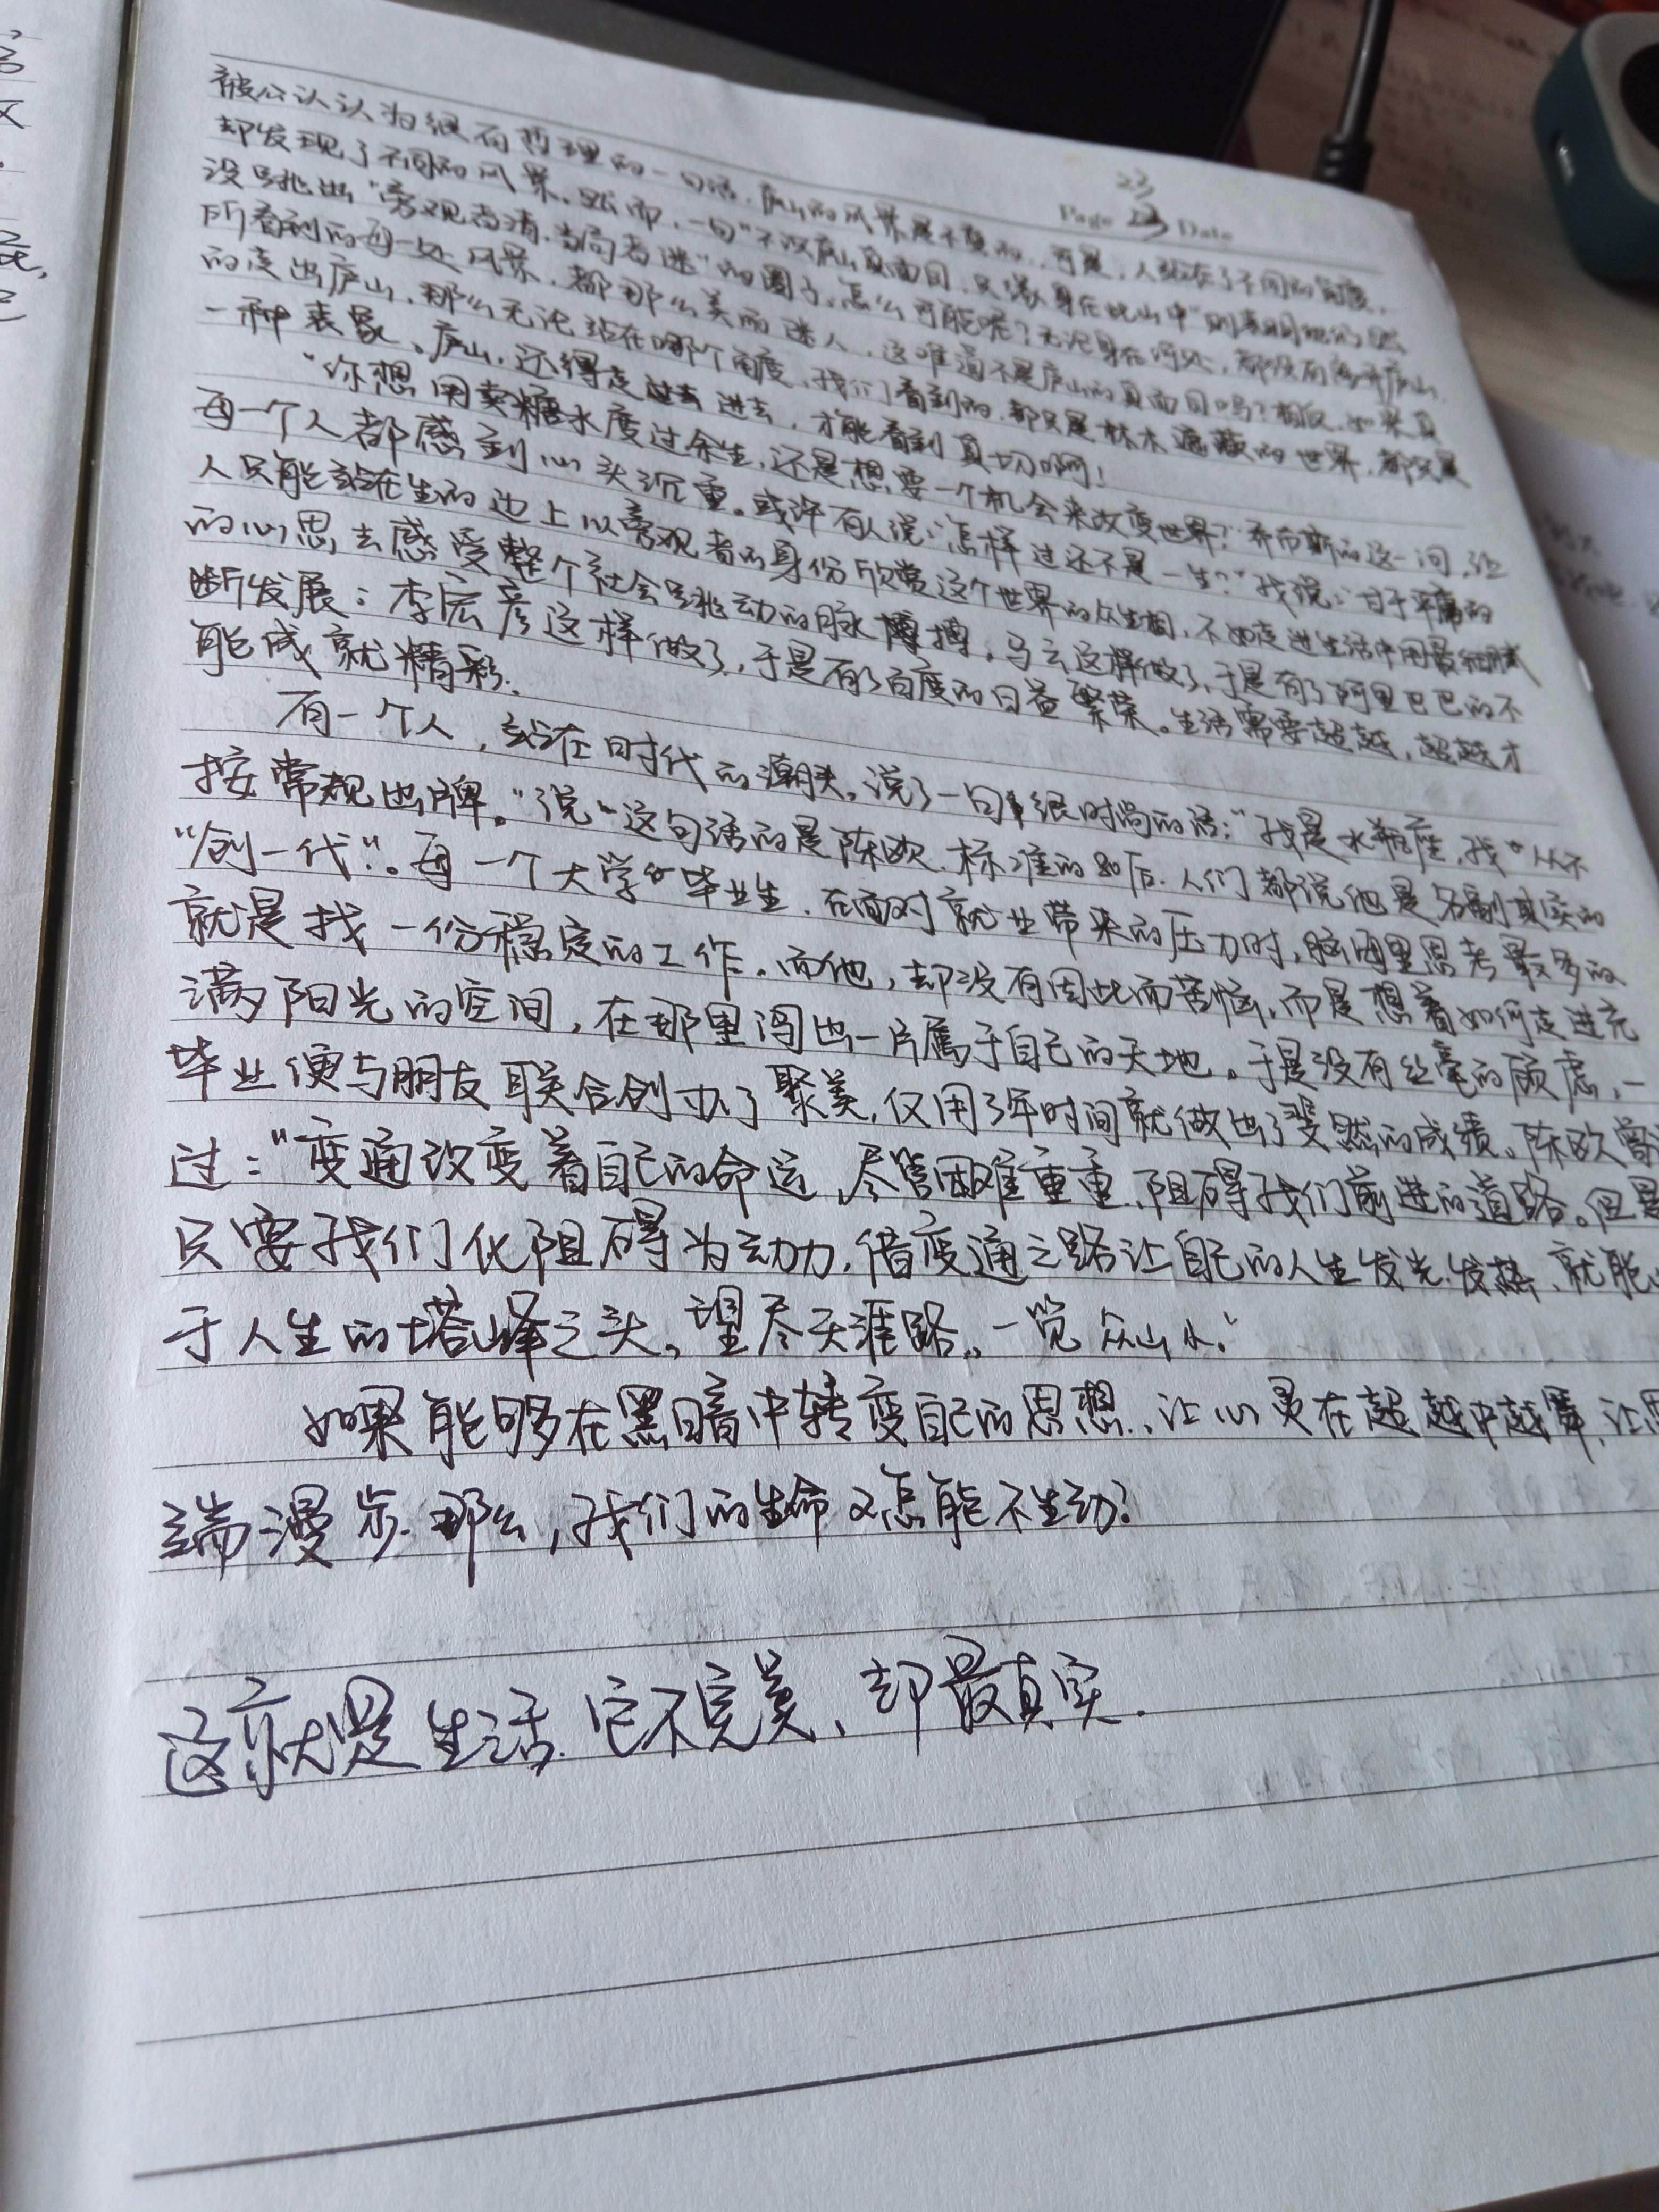 23
Page 23 Date
被公认认为很有哲理的一句话，庐山的风景是不变的，可是，人站在了不同的角度，
却发现了不同的风景。然而，一句“不识庐山真面目，只缘身在此山中”则表明他们依然
没跳出“旁观者清，当局者迷”的圈子，怎么可能呢？无论身在何处，都没有离开庐山，
所看到的每一处风景，都那么美而迷人，这难道不是庐山的真面目吗？相反，如果真
的走出庐山，那么无论站在哪个角度，我们看到的，都只是林木遮蔽的世界，都只是
一种表象。庐山，还得走进去，才能看到真切啊！
“你想用卖糖水度过余生，还是想要一个机会来改变世界？”乔布斯的这一问，让
每一个人都感到心头沉重。或许有人说：“怎样过还不是一生？”我说：甘于平庸的
人只能站在生的边上以旁观者的身份欣赏这个世界的众生相，不如走进生活中用最细腻
的心思去感受整个社会跳动的脉搏。马云这样做了，于是有了阿里巴巴的不
断发展；李宏彦这样做了，于是有了百度的日益繁荣。生活需要超越，超越才
能成就精彩.
有一个人，站在时代的潮头，说了一句很时尚的话：“我是水瓶座，我从不
按常规出牌。”说这句话的是陈欧，标准的80后.人们都说他是名副其实的
“创一代”。每一个大学毕业生，在面对就业带来的压力时，脑海里思考最多的
就是找一份稳定的工作。而他，却没有因此而苦恼，而是想着如何走进充
满阳光的空间，在那里闯出一片属于自己的天地。于是没有丝毫的顾虑，一
毕业便与朋友联合创办了聚美，仅用3年时间就做出了斐然的成绩。陈欧曾
过：“变通改变着自己的命运，尽管困难重重，阻碍我们前进的道路。但是
只要我们化阻碍为动力，借变通之路让自己的人生发光发热，就能
于人生的塔峰之头，望尽天涯路，一览众山小.”
如果能够在黑暗中转变自己的思想，让心灵在超越中越舞，让思
端漫步.那么，我们的生命又怎能不生动？
这就是生活.它不完美，却最真实.